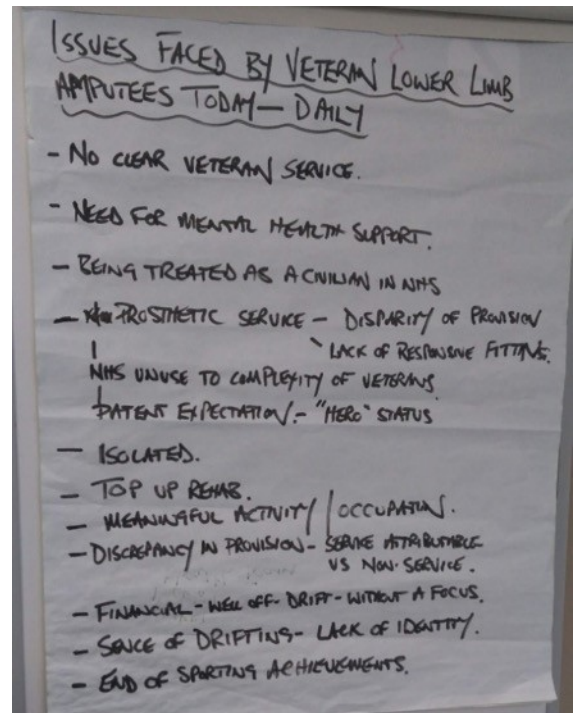 ISSUES FACED BY VETERAN LOWER LIMB
AMPUTEES TODAY - DAILY
- NO CLEAR VETERAN SERVICE.
- NEED FOR MENTAL HEALTH SUPPORT.
- BEING TREATED AS A CIVILIAN IN NHS
- PROSTHETIC SERVICE - DISPARITY OF PROVISION
LACK OF RESPONSIVE FITTING.
NHS UNUSE TO COMPLEXITY OF VETERANS
PATENT EXPECTATION. - "HERO" STATUS
- ISOLATED.
- TOP UP REHAB.
- MEANINGFUL ACTIVITY / OCCUPATION.
- DISCREPANCY IN PROVISION - SERVICE ATTRIBUTABLE
VS NON-SERVICE.
- FINANCIAL - WELL OFF - DRIFT - WITHOUT A FOCUS.
- SENCE OF DRIFTING - LACK OF IDENTITY.
- END OF SPORTING ACHIEVEMENTS.